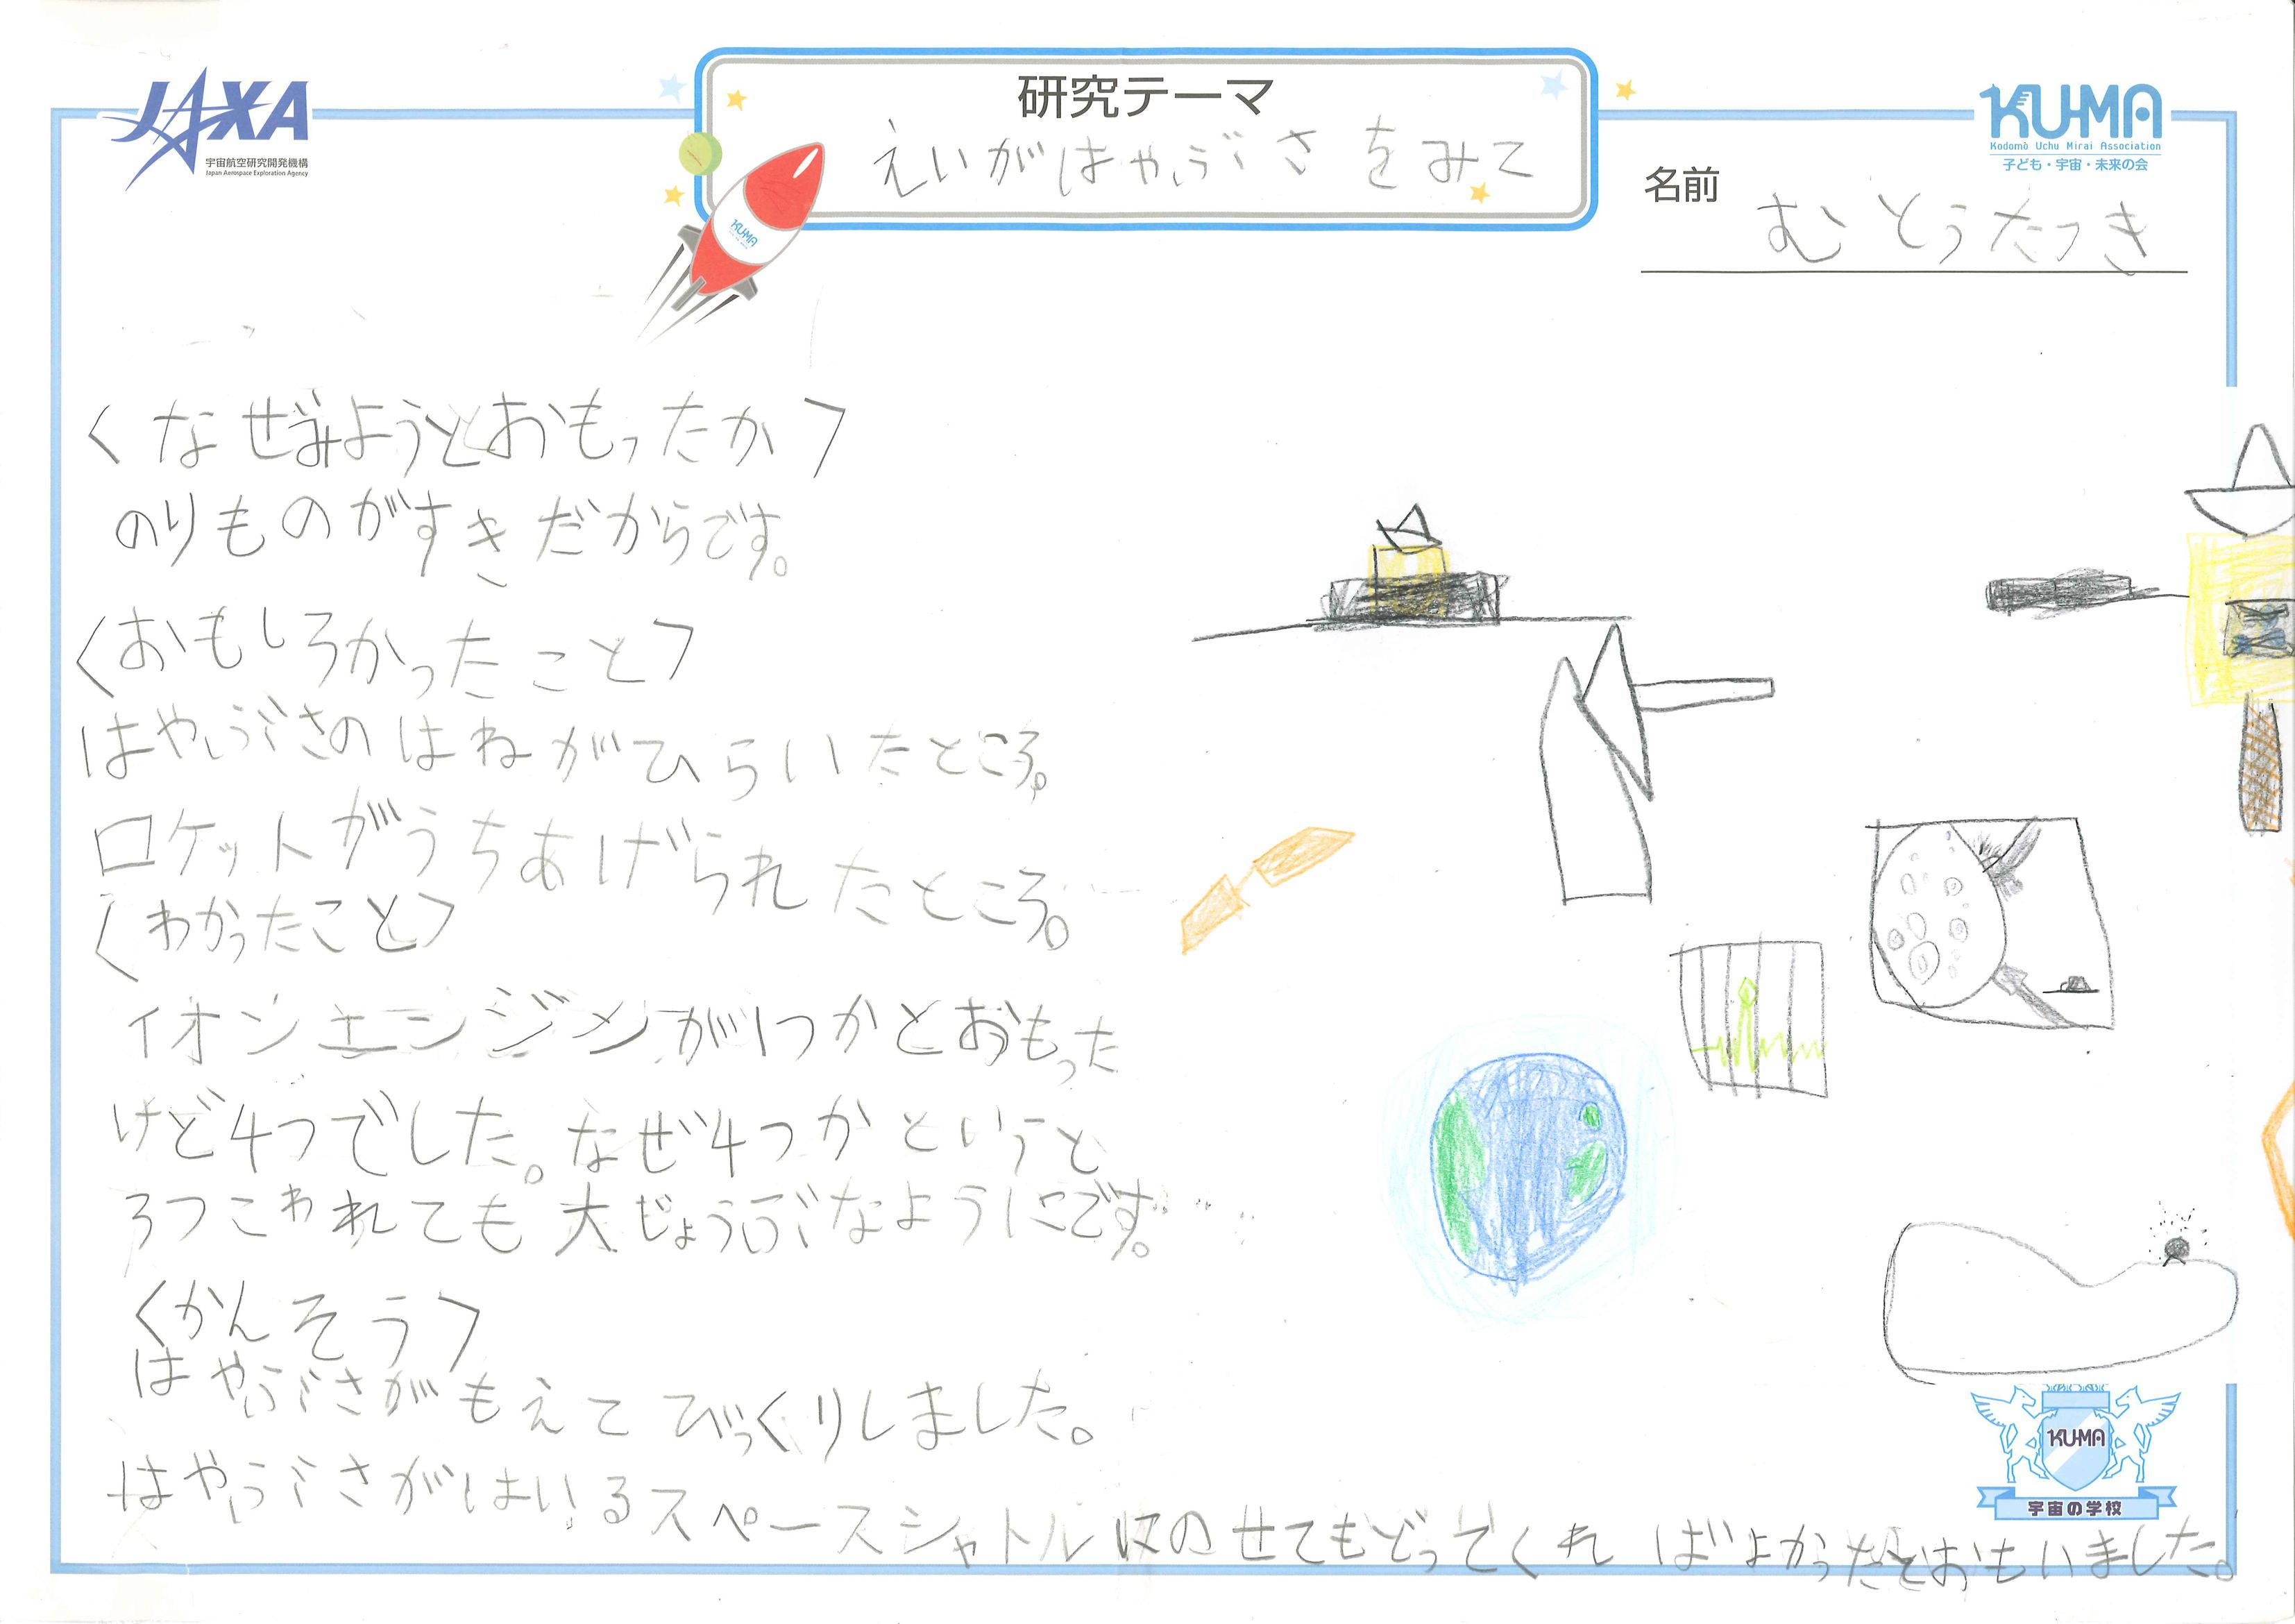 JAXA
宇宙航空研究開発機構
Japan Aerospace Exploration Agency
研究テーマ
えいがはやぶさをみて
KUMA
KU-MA
Kodomo Uchu Mirai Association
子ども・宇宙・未来の会
名前
むとうたつき
〈なぜみようとおもったか〉
のりものがすきだからです。
〈おもしろかったこと〉
はやぶさのはねがひらいたところ。
ロケットがうちあげられたところ。
〈わかったこと〉
イオンエンジンが1つかとおもった
けど4つでした。なぜ4つかというと
3つこわれても大じょうぶなようにです。
〈かんそう〉
はやぶさがもえてびっくりしました。
はやぶさがはいるスペースシャトルにのせてもどってくればよかったとおもいました。
KU-MA
宇宙の学校